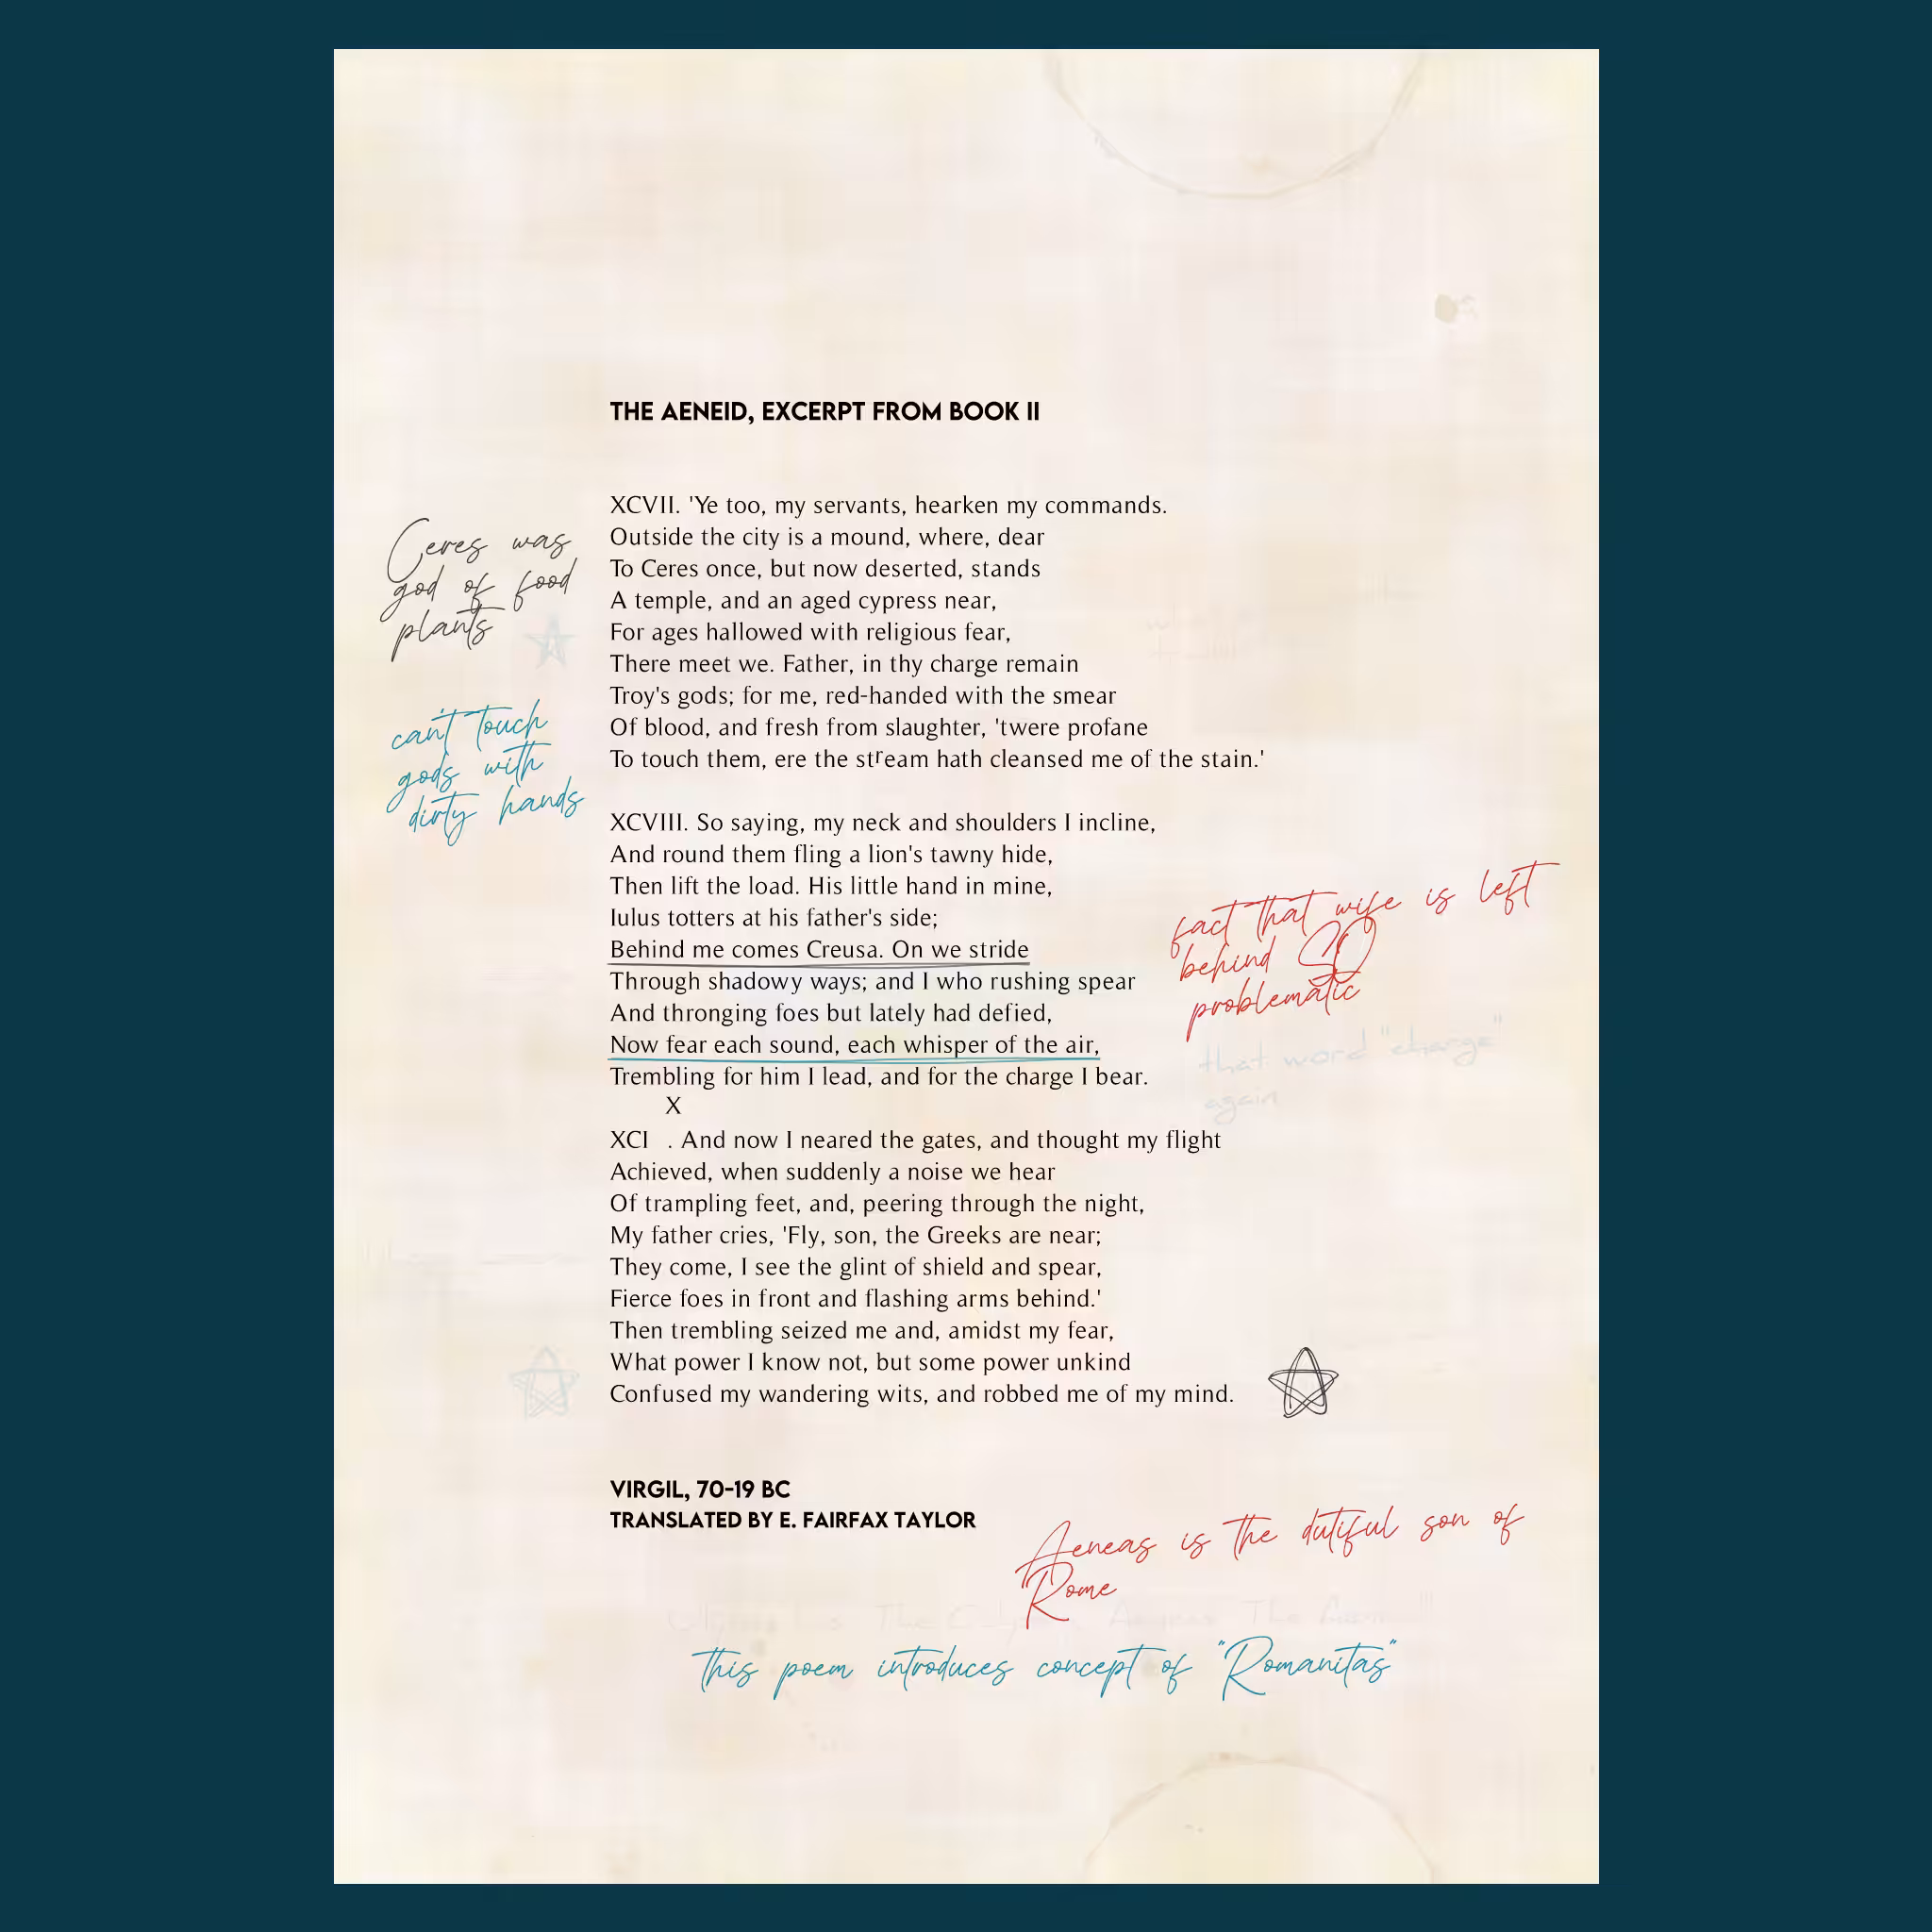 THE AENEID, EXCERPT FROM BOOK II
XCVII. 'Ye too, my servants, hearken my commands.
Outside the city is a mound, where, dear
To Ceres once, but now deserted, stands
A temple, and an aged cypress near,
For ages hallowed with religious fear,
There meet we. Father, in thy charge remain
Troy's gods; for me, red-handed with the smear
Of blood, and fresh from slaughter, 'twere profane
To touch them, ere the stream hath cleansed me of the stain.'
Ceres was
god of food
plants
can't touch
gods with
dirty hands
XCVIII. So saying, my neck and shoulders I incline,
And round them fling a lion's tawny hide,
Then lift the load. His little hand in mine,
Iulus totters at his father's side;
Behind me comes Creusa. On we stride
Through shadowy ways; and I who rushing spear
And thronging foes but lately had defied,
Now fear each sound, each whisper of the air,
Trembling for him I lead, and for the charge I bear.
fact that wife is left
behind SO
problematic
that word "charge"
again
X
XCI . And now I neared the gates, and thought my flight
Achieved, when suddenly a noise we hear
Of trampling feet, and, peering through the night,
My father cries, 'Fly, son, the Greeks are near;
They come, I see the glint of shield and spear,
Fierce foes in front and flashing arms behind.'
Then trembling seized me and, amidst my fear,
What power I know not, but some power unkind
Confused my wandering wits, and robbed me of my mind.
VIRGIL, 70-19 BC
TRANSLATED BY E. FAIRFAX TAYLOR
Aeneas is the dutiful son of
Rome
this poem introduces concept of "Romanitas"